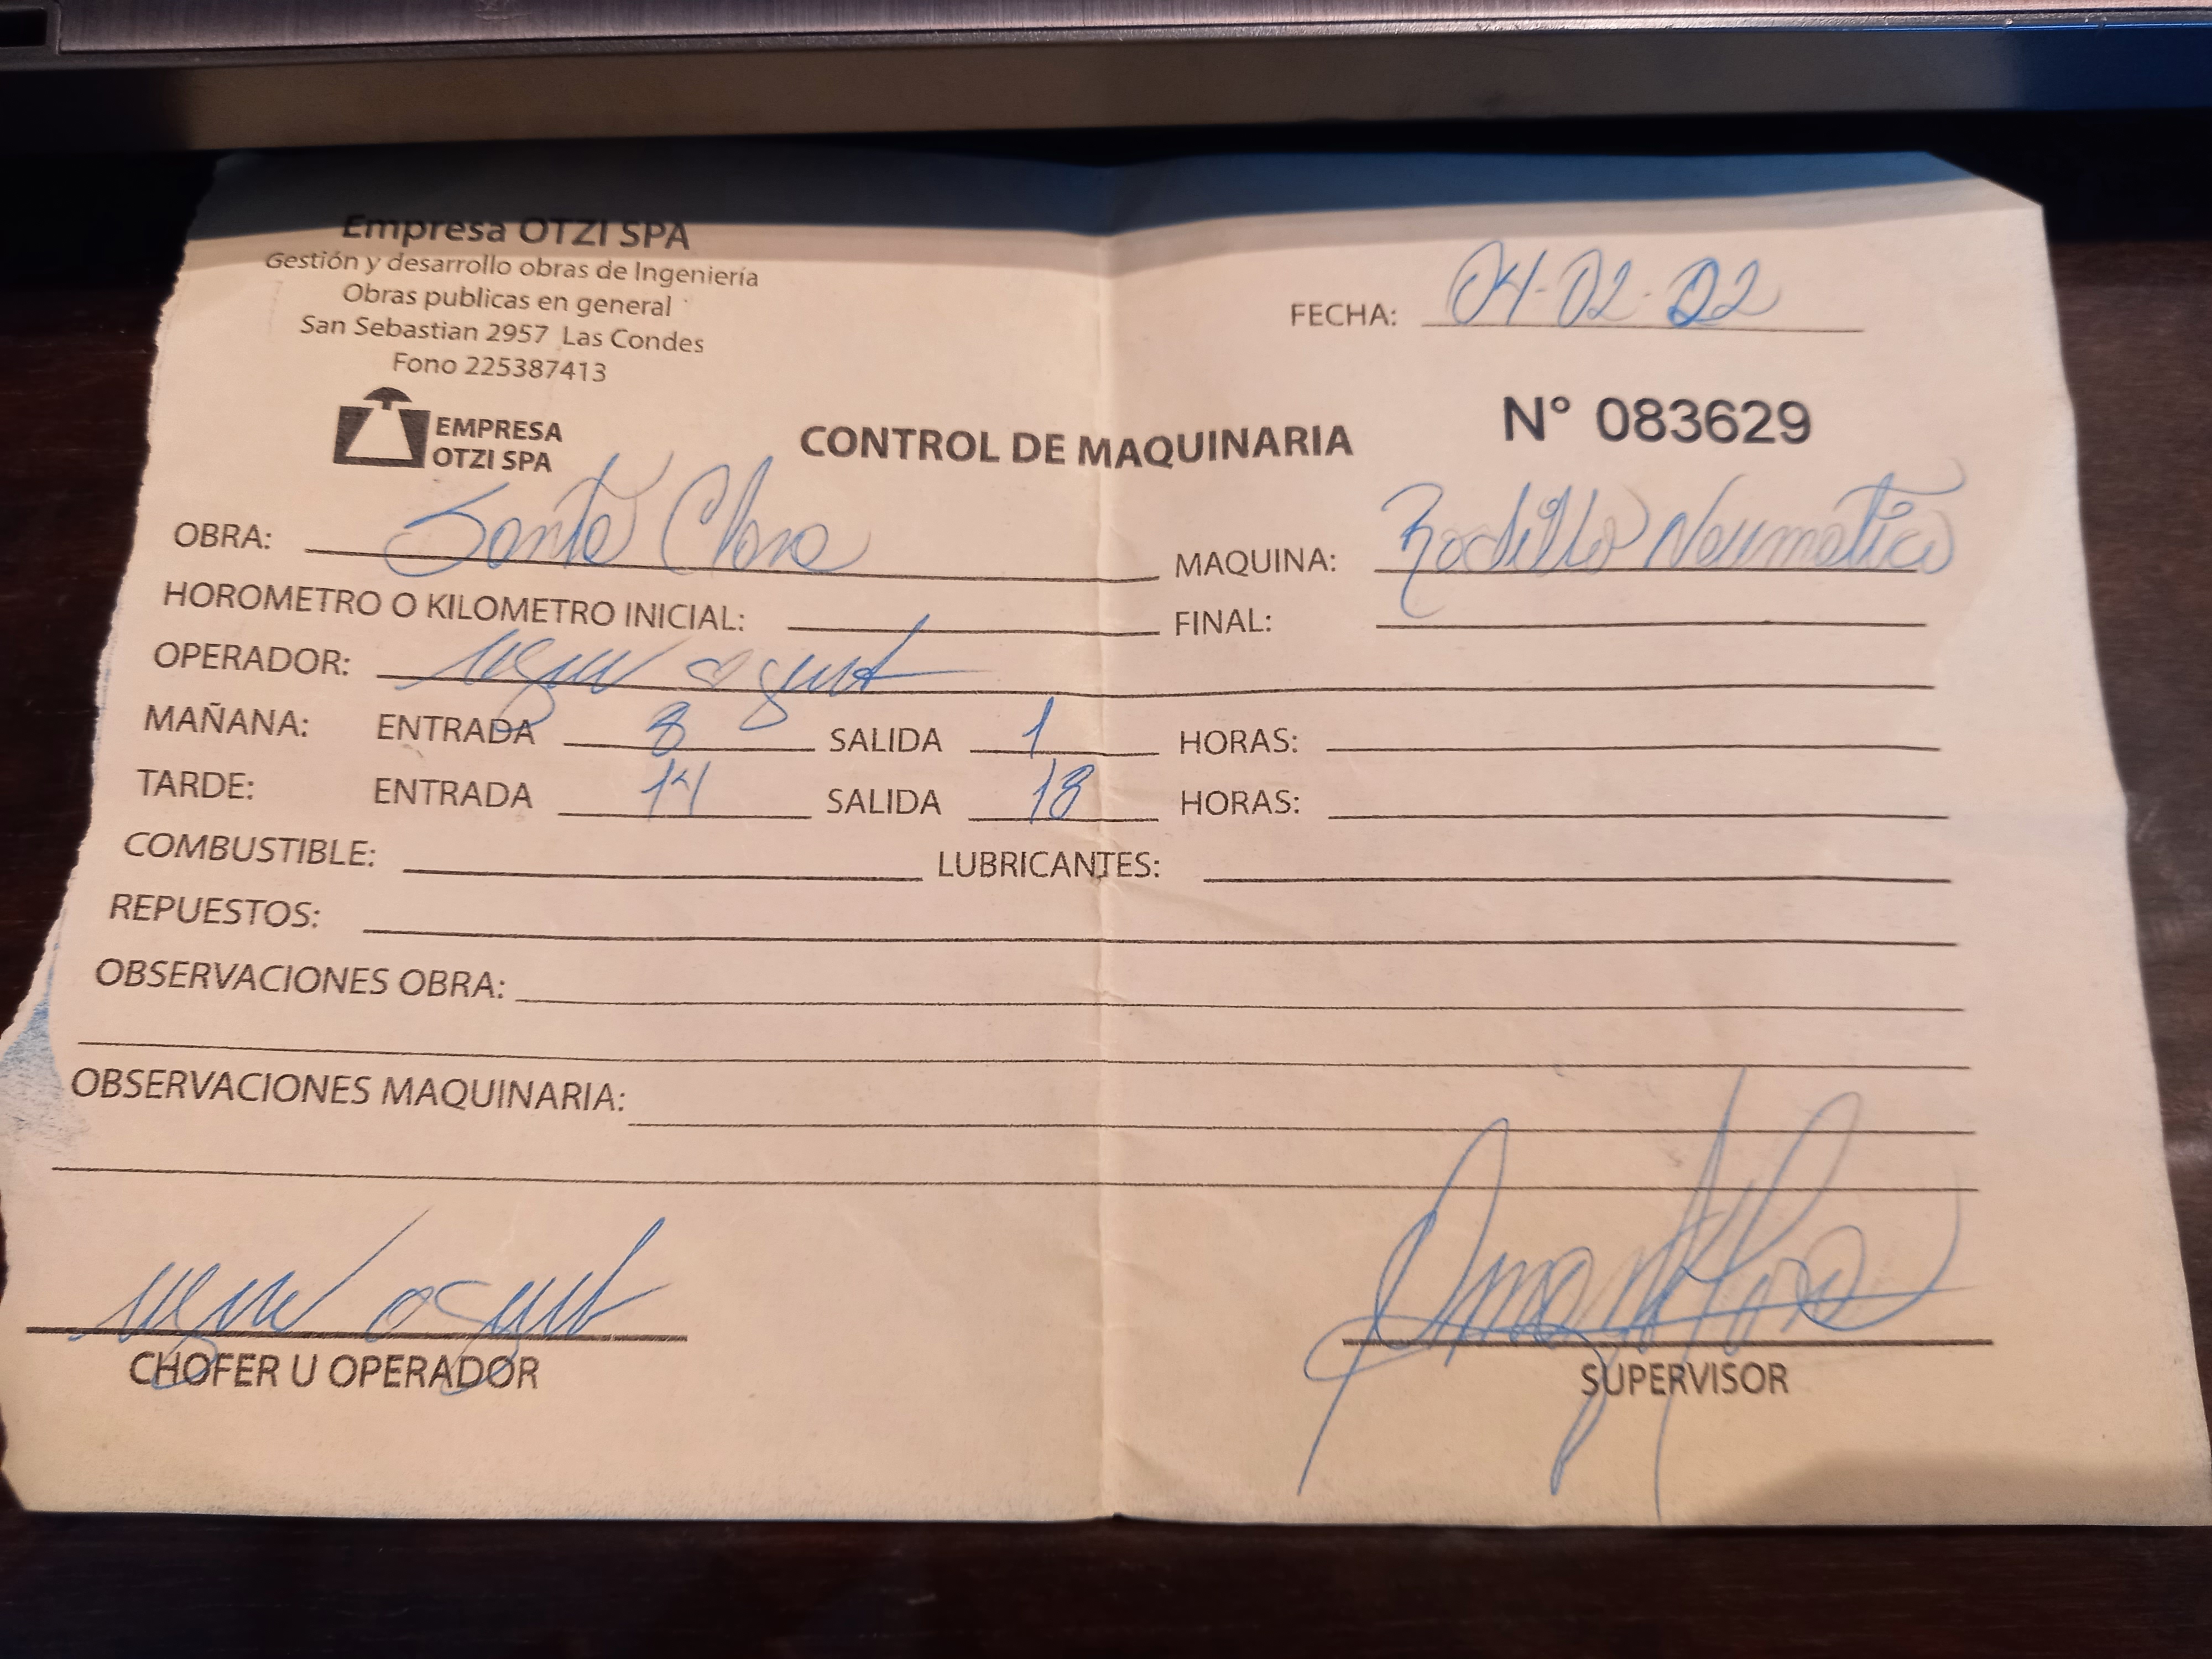 Empresa OTZI SPA
Gestión y desarrollo obras de Ingeniería
Obras publicas en general
San Sebastian 2957 Las Condes
Fono 225387413
FECHA: 04-02-22
EMPRESA
OTZI SPA
CONTROL DE MAQUINARIA
N° 083629
OBRA: Santa Clara MAQUINA: Rodillo Neumatico
HOROMETRO O KILOMETRO INICIAL: FINAL:
OPERADOR:
MAÑANA: ENTRADA 8 SALIDA 1 HORAS:
TARDE: ENTRADA 14 SALIDA 18 HORAS:
COMBUSTIBLE: LUBRICANTES:
REPUESTOS:
OBSERVACIONES OBRA:
OBSERVACIONES MAQUINARIA:
CHOFER U OPERADOR
SUPERVISOR